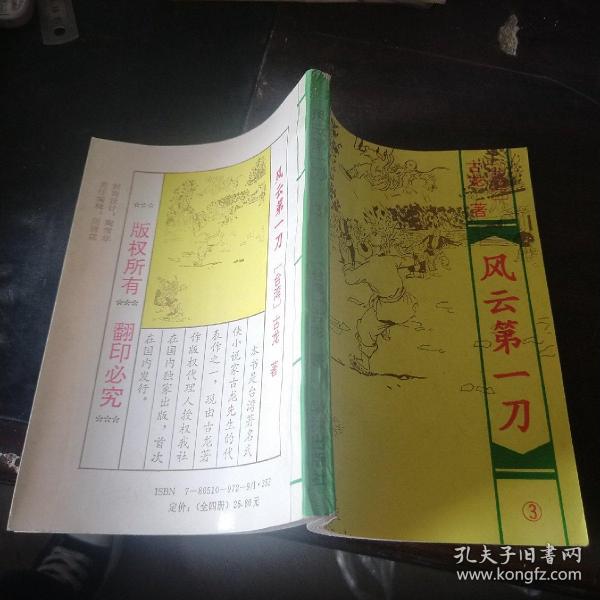 古龙 著
风云第一刀
③
风云第一刀
〔台湾〕古龙 著
本书是台湾著名武
侠小说家古龙先生的代
表作之一，现由古龙著
作版权代理人授权我社
在国内独家出版，首次
在国内发行。
☆☆☆ 版权所有 ☆☆☆ 翻印必究 ☆☆☆
ISBN 7—80510—972—9/I·252
定价：（全四册）25.80元
孔夫子旧书网
www.kongfz.com